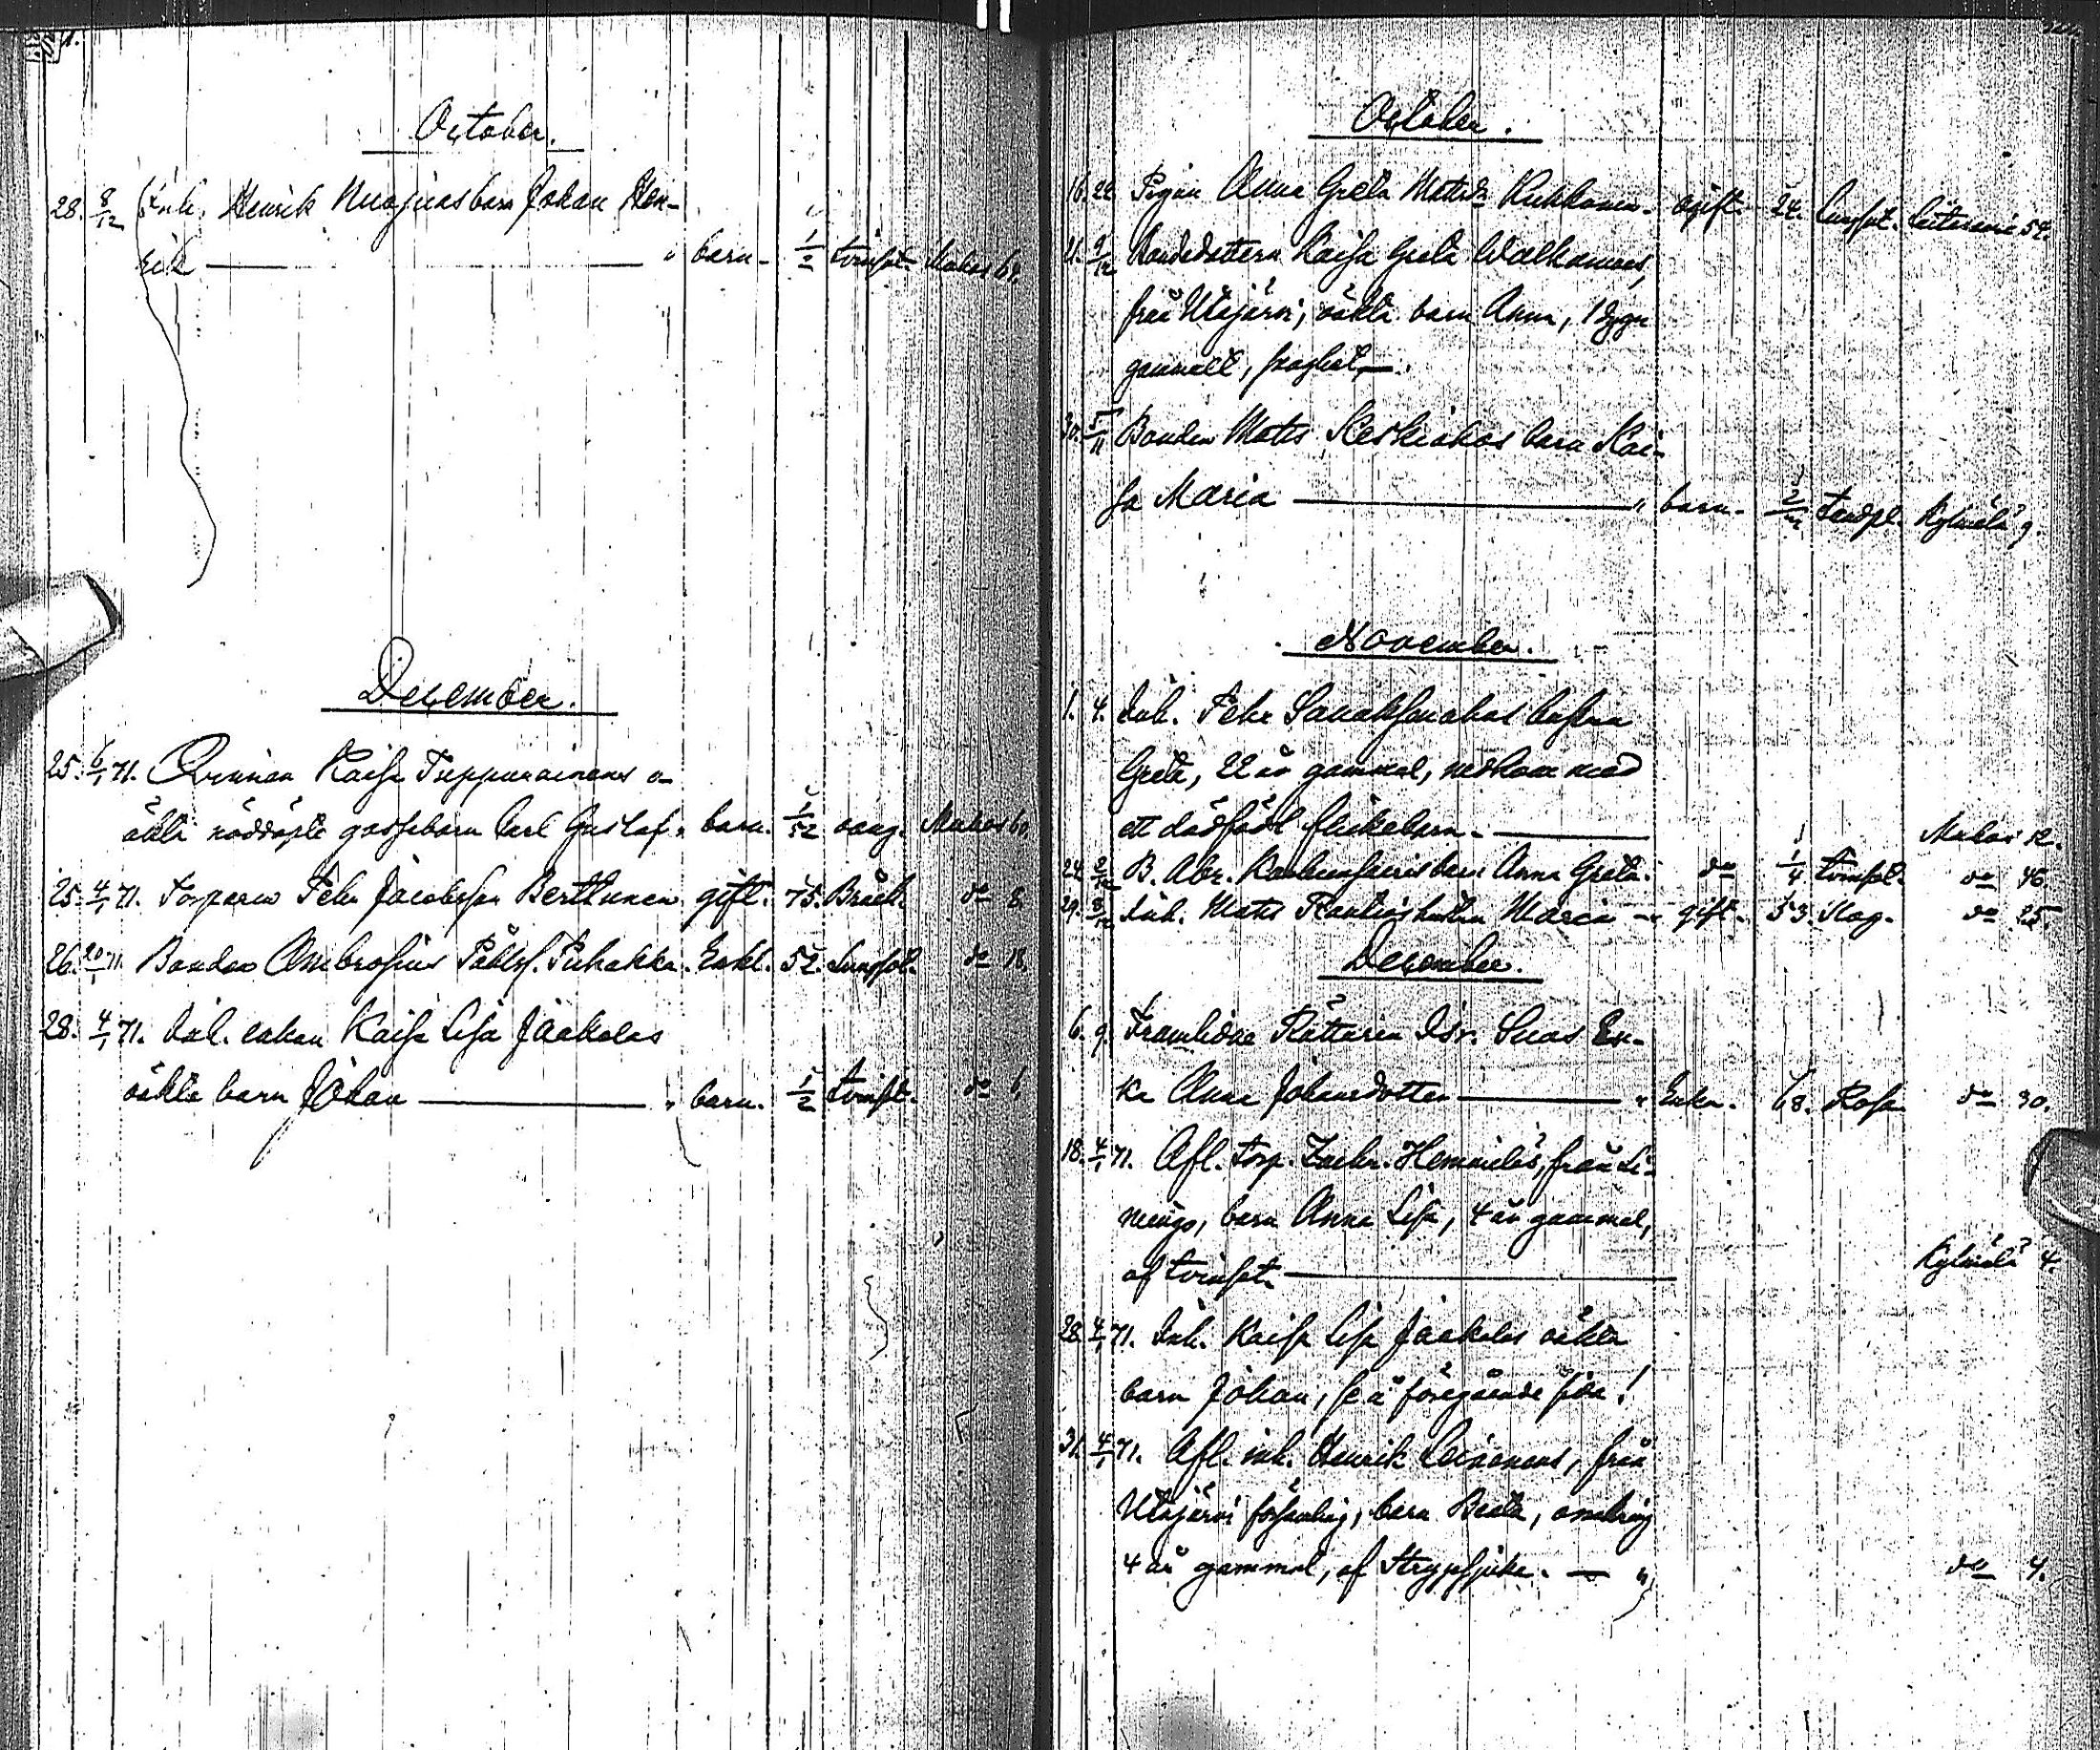 October.
28. 8/12 Inh. Henrik Nuojuas barn Johan Hen-
rik — " barn. 1/2 tvinsot. Muhos 62.
December.
25. 6/1 71. Qvinnan Kaisa Tuppurainens o-
äkta nöddöpte gossebarn Carl Gustaf. " barn. 1/52 oang. Muhos 60.
25. 4/1 71. Torparen Pehr Jacobsson Berttunen gift. 75. Bråck. do 8.
26. 20/1 71 Bonden Ambrosius Påhlss. Pukakka. Enkl. 52. Lungsot. do 18.
28. 4/1 71. Inh. enkan Kaisa Lisa Jaakolas
oäkta barn Johan — " barn. 1/2 tvinsot. do 6.
October.
16. 22 Pigan Anna Greta Matsdr Kukkonen. ogift. 24. Lungsot. 54.
21. 9/12 Bondedottern Kaisa Greta Walkamoes,
från Utajärvi, oäkta barn Anna, 1 dygn
gammalt, slaghet. —
30. 5/11 Bonden Mats Keskiahos barn Kai-
sa Maria — " barn. 2/12 tandspl. Kylmälä 9.
November.
1. 4. Inh. Pehr Sanaksenahos hustru
Greta, 22 år gammal, nedkom med
ett dödfödt flickebarn. — Muhos 12.
24. 2/12 B. Abr. barn Anna Greta. do 1/4 tvinsot. do 46.
29. 8/12 Inh. Mats Rautios hustru Maria — " gift. 53. Slag. do 25.
December.
6. 9. Framlidne Rättaren Isr. Suas En-
ka Anna Johansdotter — " Enka. 78. Rosen do 30.
18. 4/1 71. Afl. torp. Zachr. Hemmiläs, från Li-
mingo, barn Anna Lisa, 4 år gammal,
af tvinsot. — Kylmälä 4.
28. 4/1 71. Inh. Kaisa Lisa Jaakolas oäkta
barn Johan, se å föregående sida!
31. 4/1 71. Afl. inh. Henrik Leinonens, från
Utajärvi församling, barn Beata, omkring
4 år gammal, af Strypsjuka. — " do 4.